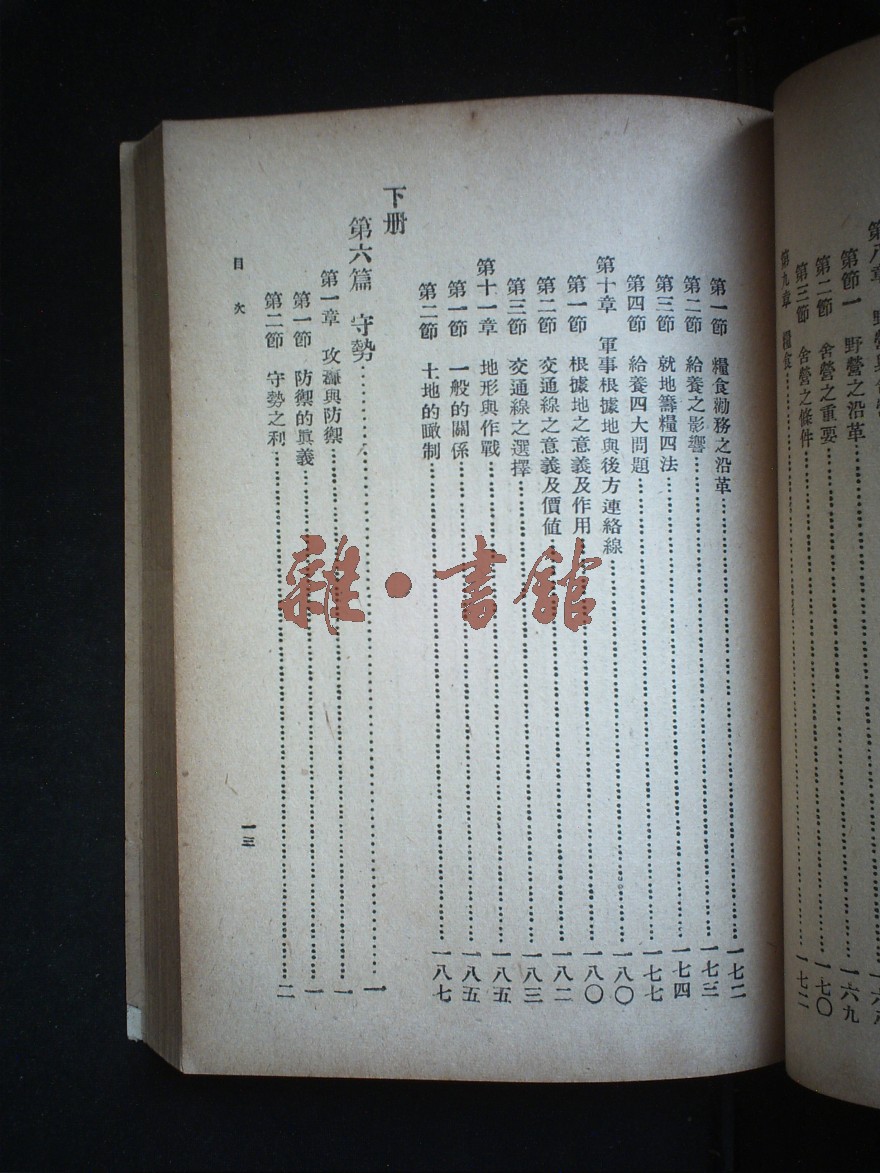 第八章
第節一 野營之沿革……一六九
第二節 舍營之重要……一七〇
第三節 舍營之條件……一七二
第九章 糧食……
第一節 糧食勤務之沿革……一七二
第二節 給養之影響……一七三
第三節 就地籌糧四法……一七四
第四節 給養四大問題……一七七
第十章 軍事根據地與後方連絡線……一八〇
第一節 根據地之意義及作用……一八〇
第二節 交通線之意義及價値……一八二
第三節 交通線之選擇……一八三
第十一章 地形與作戰……一八五
第一節 一般的關係……一八五
第二節 土地的瞰制……一八七
下册
第六篇 守勢……一
第一章 攻擊與防禦……一
第一節 防禦的眞義……一
第二節 守勢之利……二
目次
一三
雜·書館